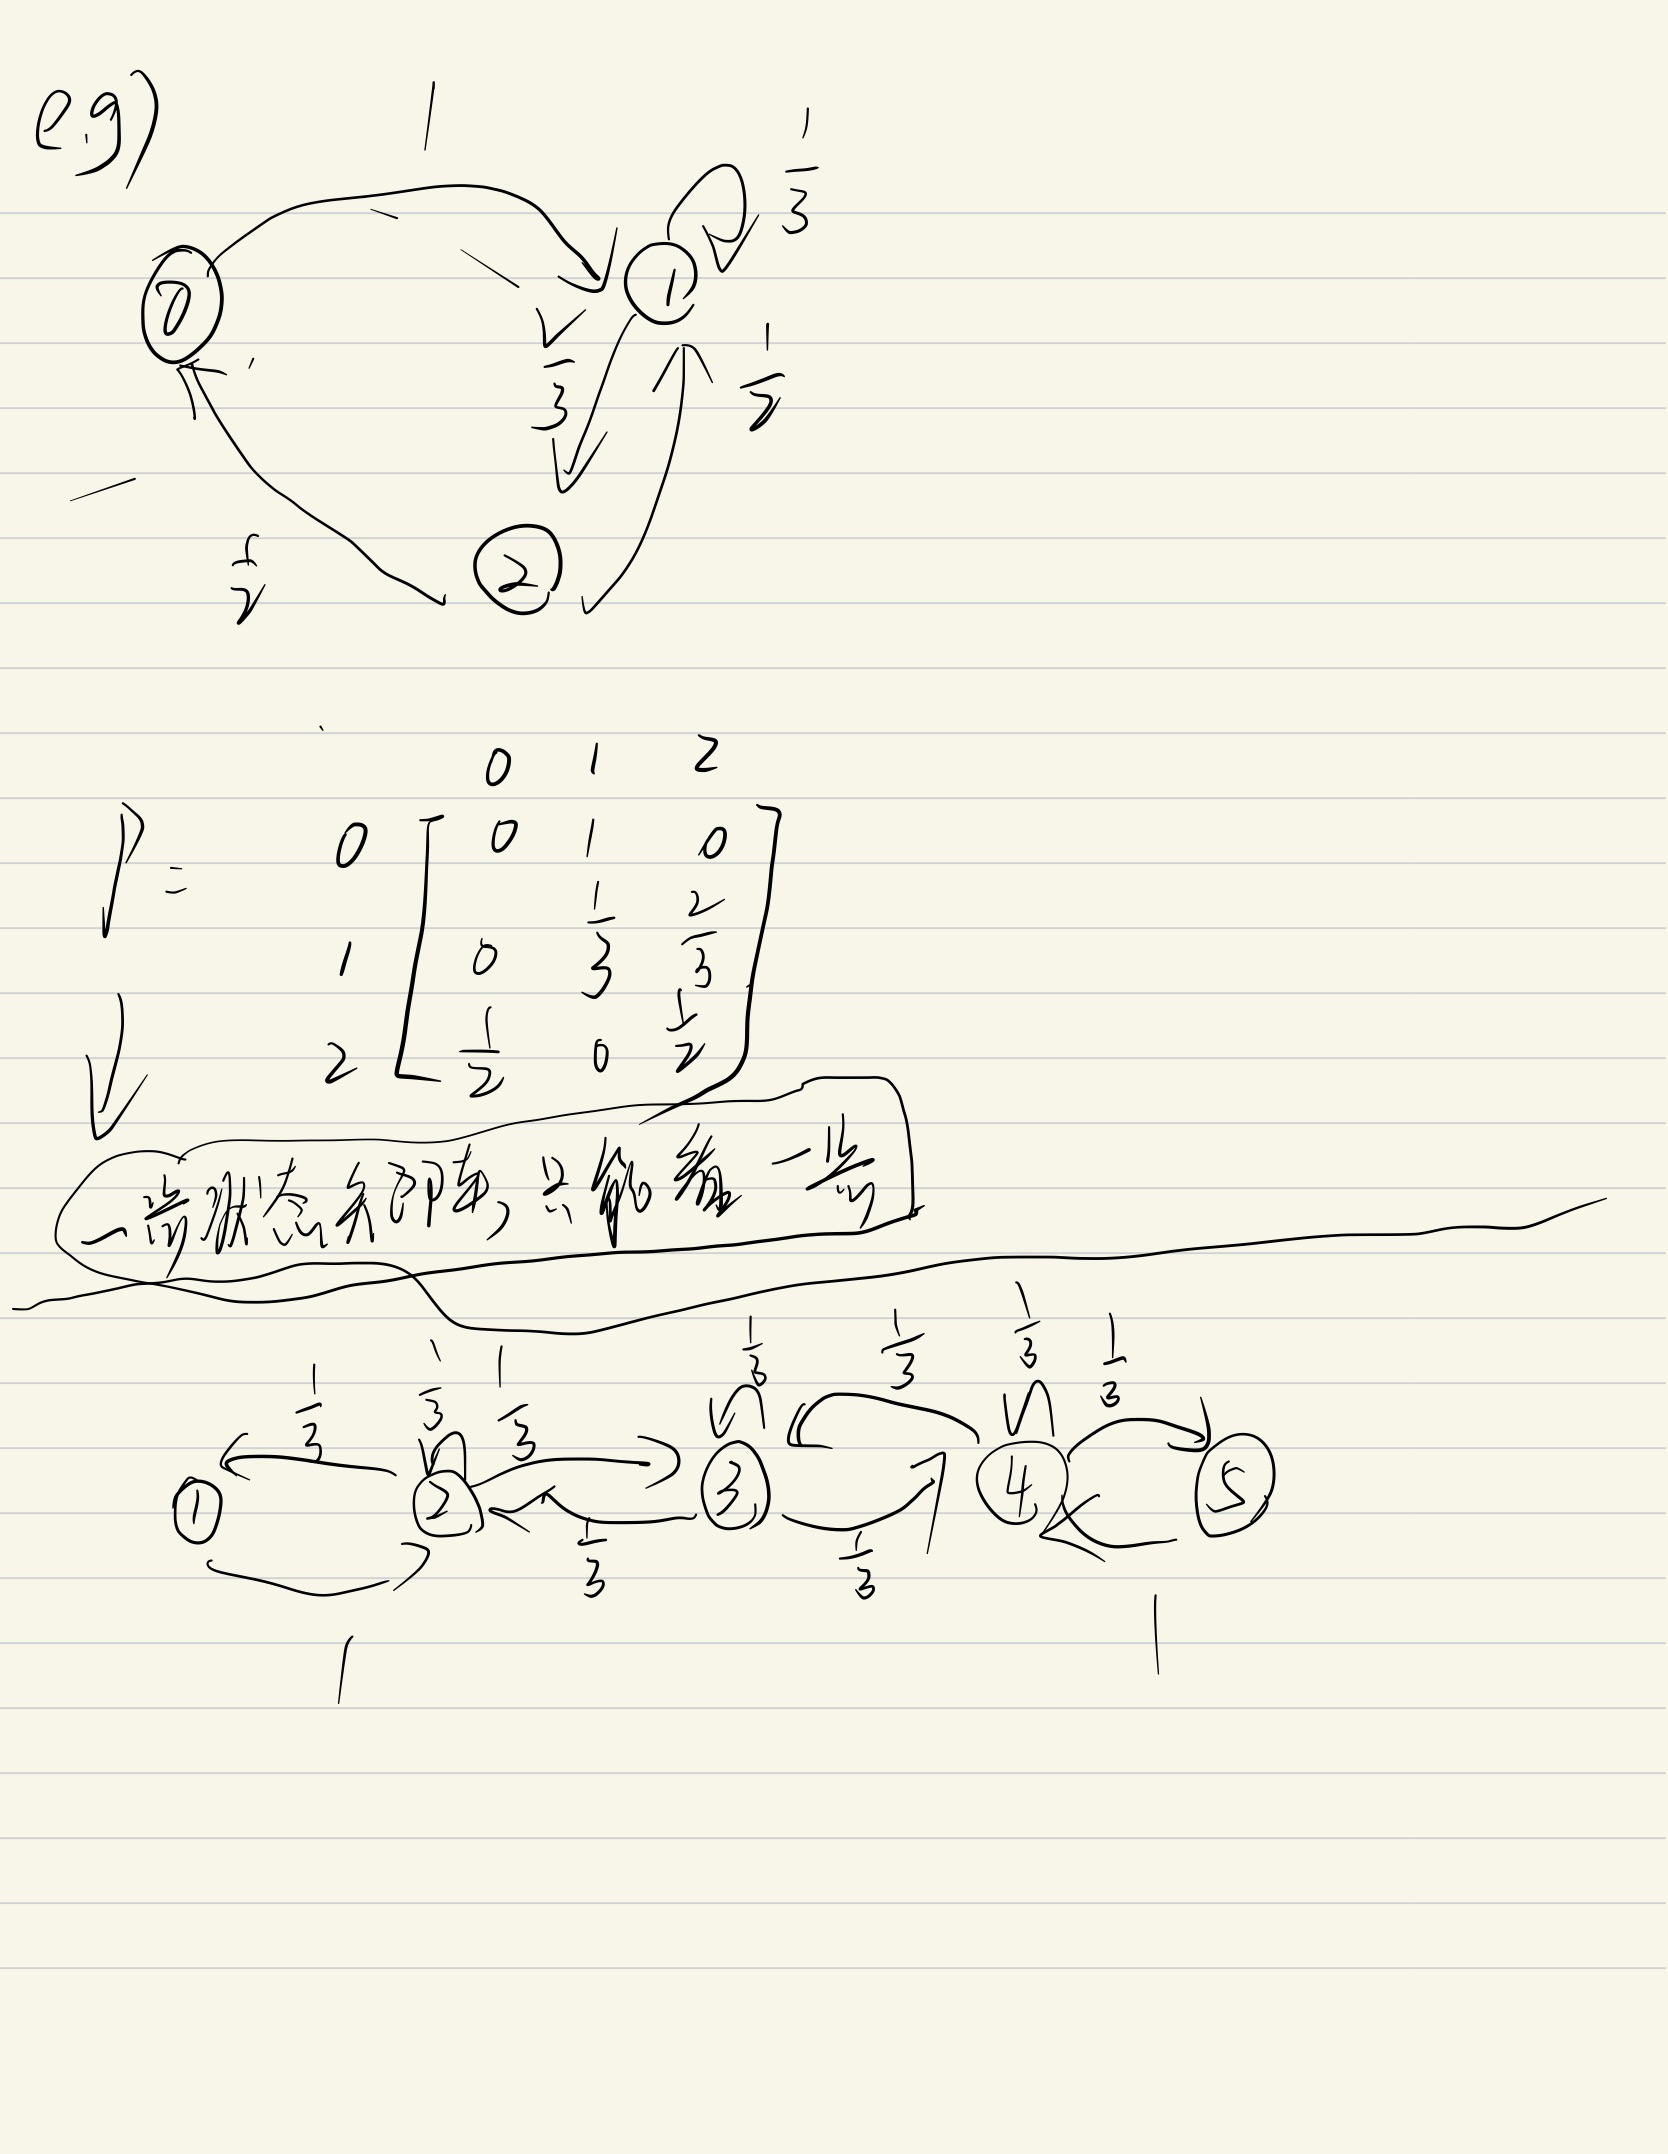 e.g)
1
1/3
0
1
2/3
1/2
2
1/2
0 1 2
P = 0 [ 0 1 0
1 0 1/3 2/3
2 1/2 0 1/2 ]
一步状态矩阵, 只能看一步
1/3 1/3 1/3 1/3 1/3 1/3 1/3
1 2 3 4 5
1/3 1/3
1 1